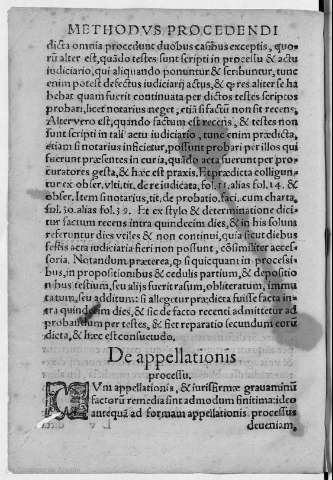 METHODVS PROCEDENDI
dicta omnia procedunt duobus casibus exceptis, quo-
rũ alter est, quãdo testes sunt scripti in processu & actu
iudiciario, qui aliquando ponuntur & scribuntur, tunc
enim potest defectus iudiciarij actus, & ꝙ res aliter se ha
bebat quam fuerit continuata per dictos testes scriptos
probari, licet notarius neget, etiã si factũ non sit recens.
Alter vero est, quando factum est recens, & testes non
sunt scripti in tali actu iudiciario, tunc enim prædicta,
etiam si notarius inficietur, possunt probari per illos qui
fuerunt præsentes in curia, quãdo acta fuerunt per pro-
curatores gesta, & hæc est praxis. Et prædicta colligun-
tur ex obser. vlti. tit. de re iudicata, fol. 11. alias fol. 14. &
obser. Item si notarius, tit. de probatio, facti. cum charta.
fol. 30. alias fol. 39. Et ex stylo & determinatione dici-
tur factum recens intra quindecim dies, & in his solum
referuntur dies vtiles & non continui, quia sicut diebus
festis acta iudiciaria fieri non possunt, cõsimiliter acces-
soria. Notandum præterea, ꝙ si quicquam in processi-
bus, in propositionibus & cedulis partium, & depositio
nibus testium, seu alijs fuerit rasum, obliteratum, immu
tatum, seu additum: si allegetur prædicta fuisse facta in
tra quindecim dies, & sic de facto recenti admittetur ad
probandum per testes, & fiet reparatio secundum eorũ
dicta, & hæc est consuetudo.
De appellationis
processu.
CVm appellationis, & iurisfirmæ grauaminũ
factorũ remedia sint admodum finitima: ideo
antequã ad formam appellationis processus
L v deueniam.